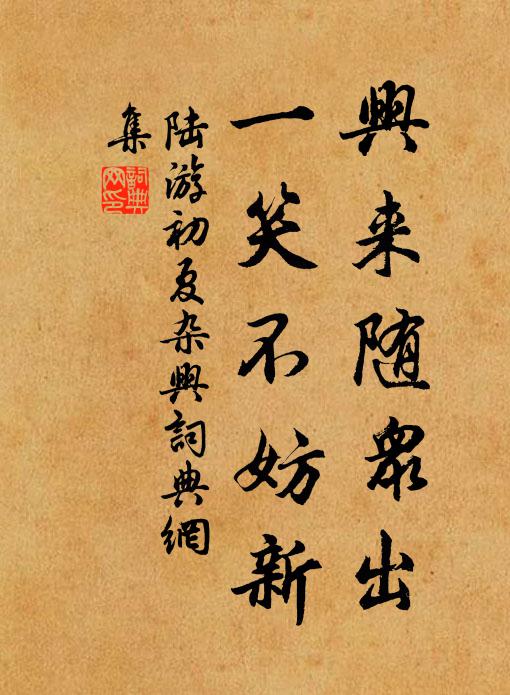 興来随衆出
一笑不妨新
陆游初夏杂興詞典網
集
詞典網印